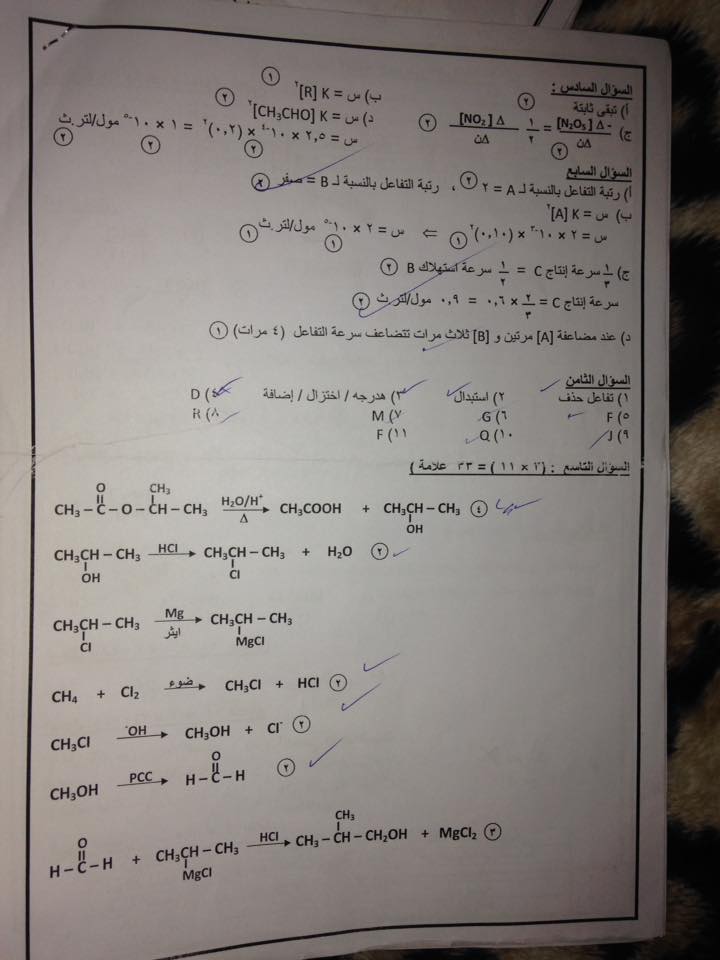 السؤال السادس :
أ) تبقى ثابتة ٢ ب) س = K [R]٢ ١
ج) - Δ [N₂O₅] / Δن = ١/٢ Δ [NO₂] / Δن ٢ ٢ د) س = K [CH₃CHO]٢ ٢
س = ٢,٥ × ١٠-٤ × (٠,٢)٢ = ١ × ١٠-٥ مول/لتر.ث ٢ ٢ ٢
السؤال السابع
أ) رتبة التفاعل بالنسبة لـ A = ٢ ٢ ، رتبة التفاعل بالنسبة لـ B = صفر ٢
ب) س = K [A]٢
س = ٢ × ١٠-٣ × (٠,١٠)٢ ١ ⇐ س = ٢ × ١٠-٥ مول/لتر.ث ١ ١
ج) ١/٣ سرعة إنتاج C = ١/٢ سرعة استهلاك B ٢
سرعة إنتاج C = ٣/٢ × ٠,٦ = ٠,٩ مول/لتر.ث ٢
د) عند مضاعفة [A] مرتين و [B] ثلاث مرات تتضاعف سرعة التفاعل (٤ مرات) ١
السؤال الثامن
١) تفاعل حذف ٢) استبدال ٣) هدرجه / اختزال / إضافة ٤) D
٥) F ٦) G ٧) M ٨) R
٩) J ١٠) Q ١١) F
السؤال التاسع : (٣ × ١١ ) = ٣٣ علامة )
CH₃ – C(=O) – O – CH(CH₃) – CH₃ H₂O/H⁺ Δ → CH₃COOH + CH₃CH(OH) – CH₃ ٤
CH₃CH(OH) – CH₃ HCl → CH₃CH(Cl) – CH₃ + H₂O ٢
CH₃CH(Cl) – CH₃ Mg ايثر → CH₃CH(MgCl) – CH₃
CH₄ + Cl₂ ضوء → CH₃Cl + HCl ٢
CH₃Cl ⁻OH → CH₃OH + Cl⁻ ٢
CH₃OH PCC → H – C(=O) – H ٢
H – C(=O) – H + CH₃CH(MgCl) – CH₃ HCl → CH₃ – CH(CH₃) – CH₂OH + MgCl₂ ٣